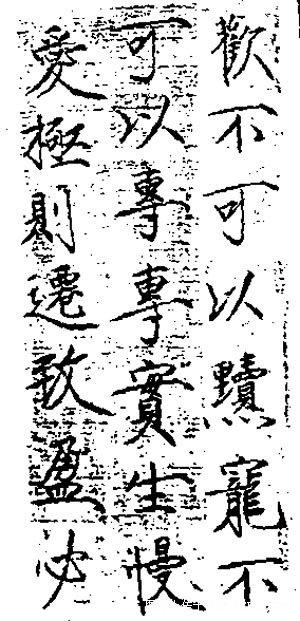 歡不可以黷寵不
可以專專實生慢
愛極則遷致盈必